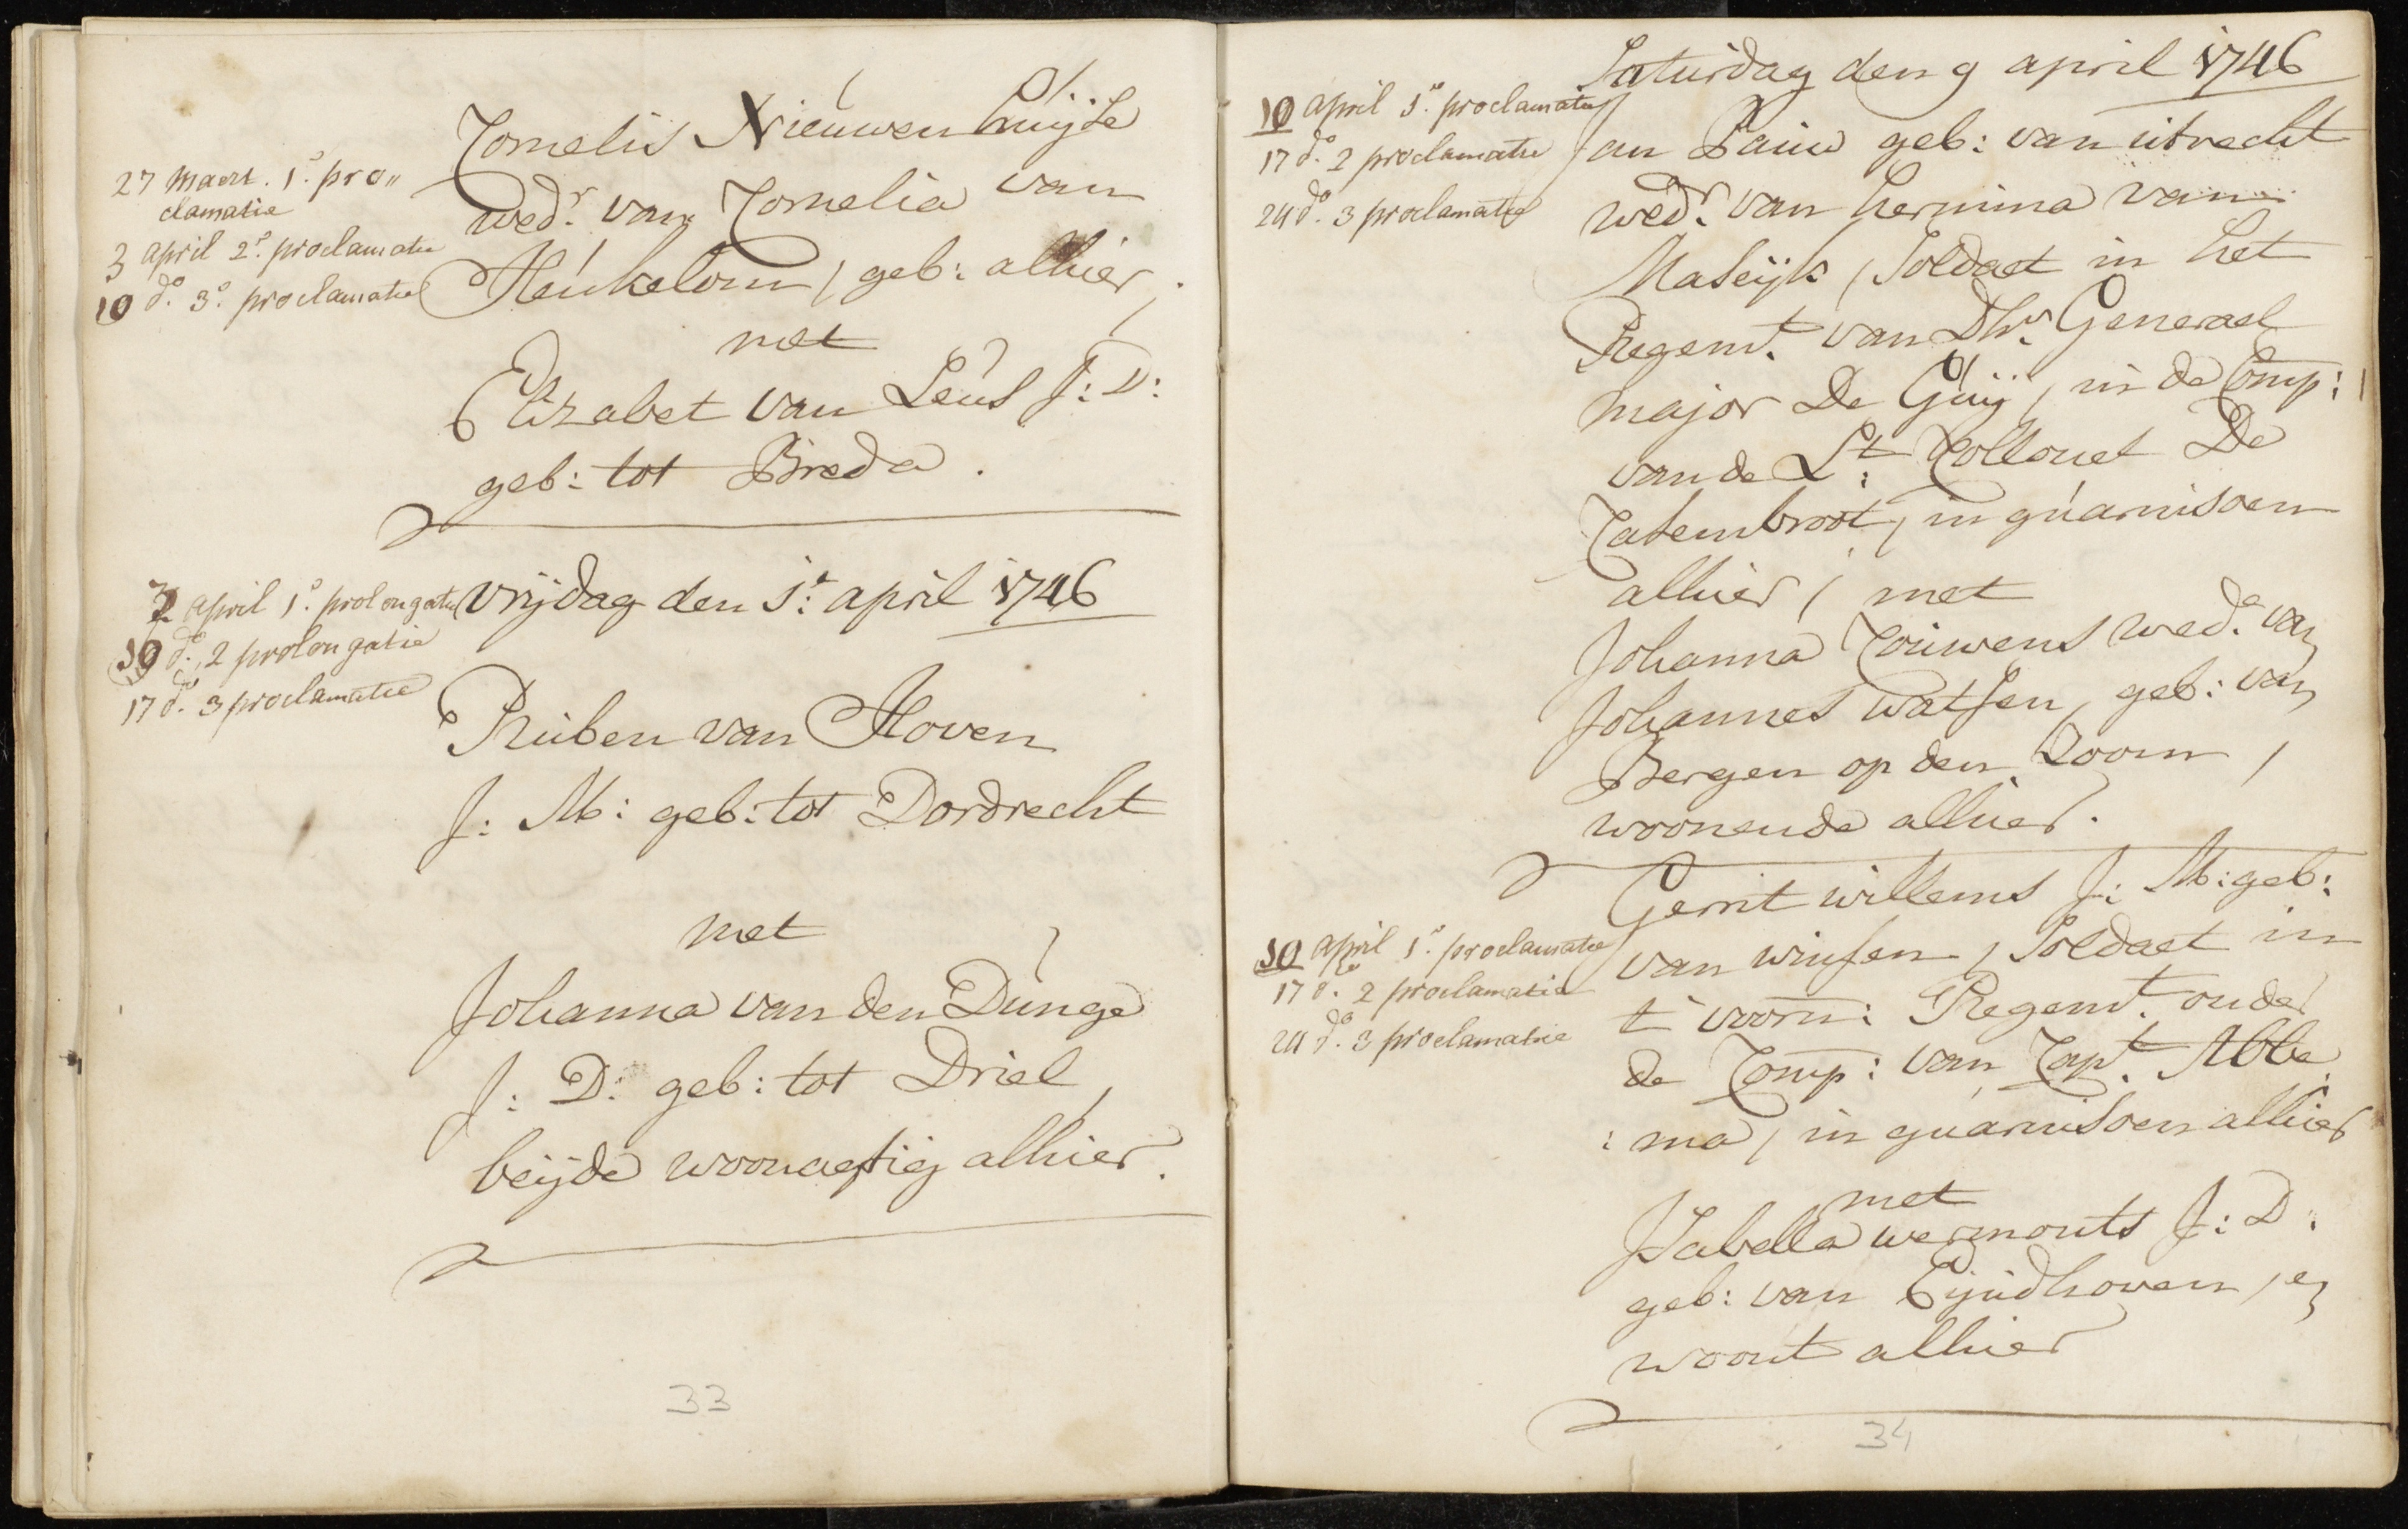 27 Maert. 1º. pro„
clamatie
3 april 2º. proclamatie
10 dº. 3º. proclamatie
Cornelis Nieuwenhuijse
wedr. van Cornelia van
Heukelom, geb: alhier,
met
Elizabet van Leus J: D:
geb: tot Breda.
april 1º. prolongatie
10 dº. 2 prolongatie
17 dº. 3 proclamatie
Vrijdag den 1e. april 1746
Ruben van Hoven
J: M: geb: tot Dordrecht
met
Johanna van den Dunge
J: D: geb: tot Driel,
beijde woonagtig alhier.
33
Saturdag den 9 april 1746
10 april 1º. proclamatie
17 dº. 2 proclamatie
24 dº. 3 proclamatie
Jan Pauw geb: van utrecht
wedr. van hermina van
Maseijk, Soldaet in het
Regemt. van Dhr. Generael
major De Guij, in de Comp:
van de Lt: Collonel De
Catembroot, in guarnisoen
alhier, met
Johanna Couwens wede. van
Johannes Watsen, geb: van
Bergen op den Zoom,
woonende alhier.
10 april 1º. proclamatie
17 dº. 2 proclamatie
24 dº. 3 proclamatie
Gerrit willems J: M: geb:
van winsen, Soldaet in
t' voorn: Regemt. onder
de Comp: van Capt. Abbe
: ma, in guarnisoen alhier
met
Isabella wermonts J: D.
geb: van Eijndhoven, en
woont alhier
34